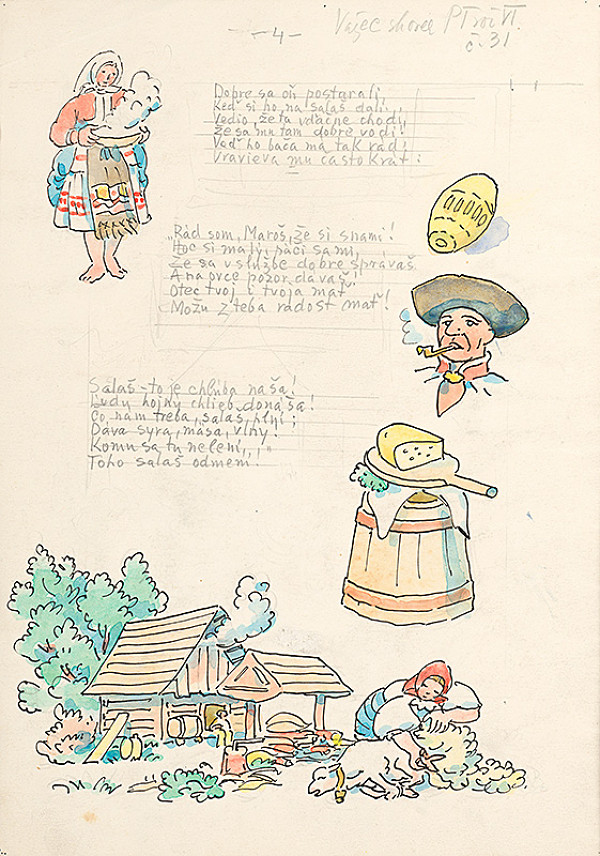 - 4 -
Važec shora PT roč VI.
č. 31
Dobre sa oň postarali,
Keď si ho na salaš dali,
Vedio, že ta vďačne chodí,
že sa mu tam dobre vodí!
Veď ho bača má tak rád!
Vravieva mu často krát:
„Rád som, Maroš, že si snami!
Hoc si malý, páči sa mi,
Že sa v službe dobre správaš
A na ovce pozor dávaš,
Otec tvoj i tvoja mať
Možu z teba radosť mať!
Salaš - to je chlúba naša!
Ľudu hojný chlieb donáša!
Čo nám treba, salaš plní;
Dáva syra, mäsa, vlny!
Komu sa tu nelení,
Toho salaš odmení."